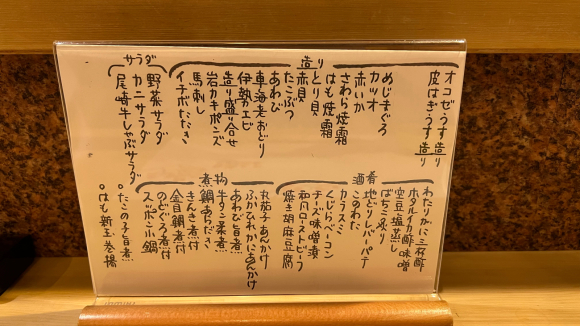 オコゼうす造り
皮はぎうす造り
造り
めじまぐろ
カツオ
赤いか
さわら焼霜
はも焼霜
とり貝
赤貝
たこぶつ
あわび
車海老おどり
伊勢エビ
造り盛り合せ
岩カキポンズ
馬刺し
イチボたたき
サラダ
野菜サラダ
カニサラダ
尾崎牛しゃぶサラダ
酒肴
わたりがに三杯酢
ホタルイカ酢味噌
空豆塩蒸し
ばちこ炙り
地どりレバーパテ
このわた
カラスミ
くじらベーコン
チーズ味噌漬
和風ローストビーフ
焼き胡麻豆腐
煮物 鍋
丸茄子あんかけ
ふかひれかにあんかけ
あわび旨煮
牛タン柔煮
鯛あらだき
きんき煮付
金目鯛煮付
のどぐろ煮付
スッポン小鍋
○たこの子旨煮
○はも新玉巻揚